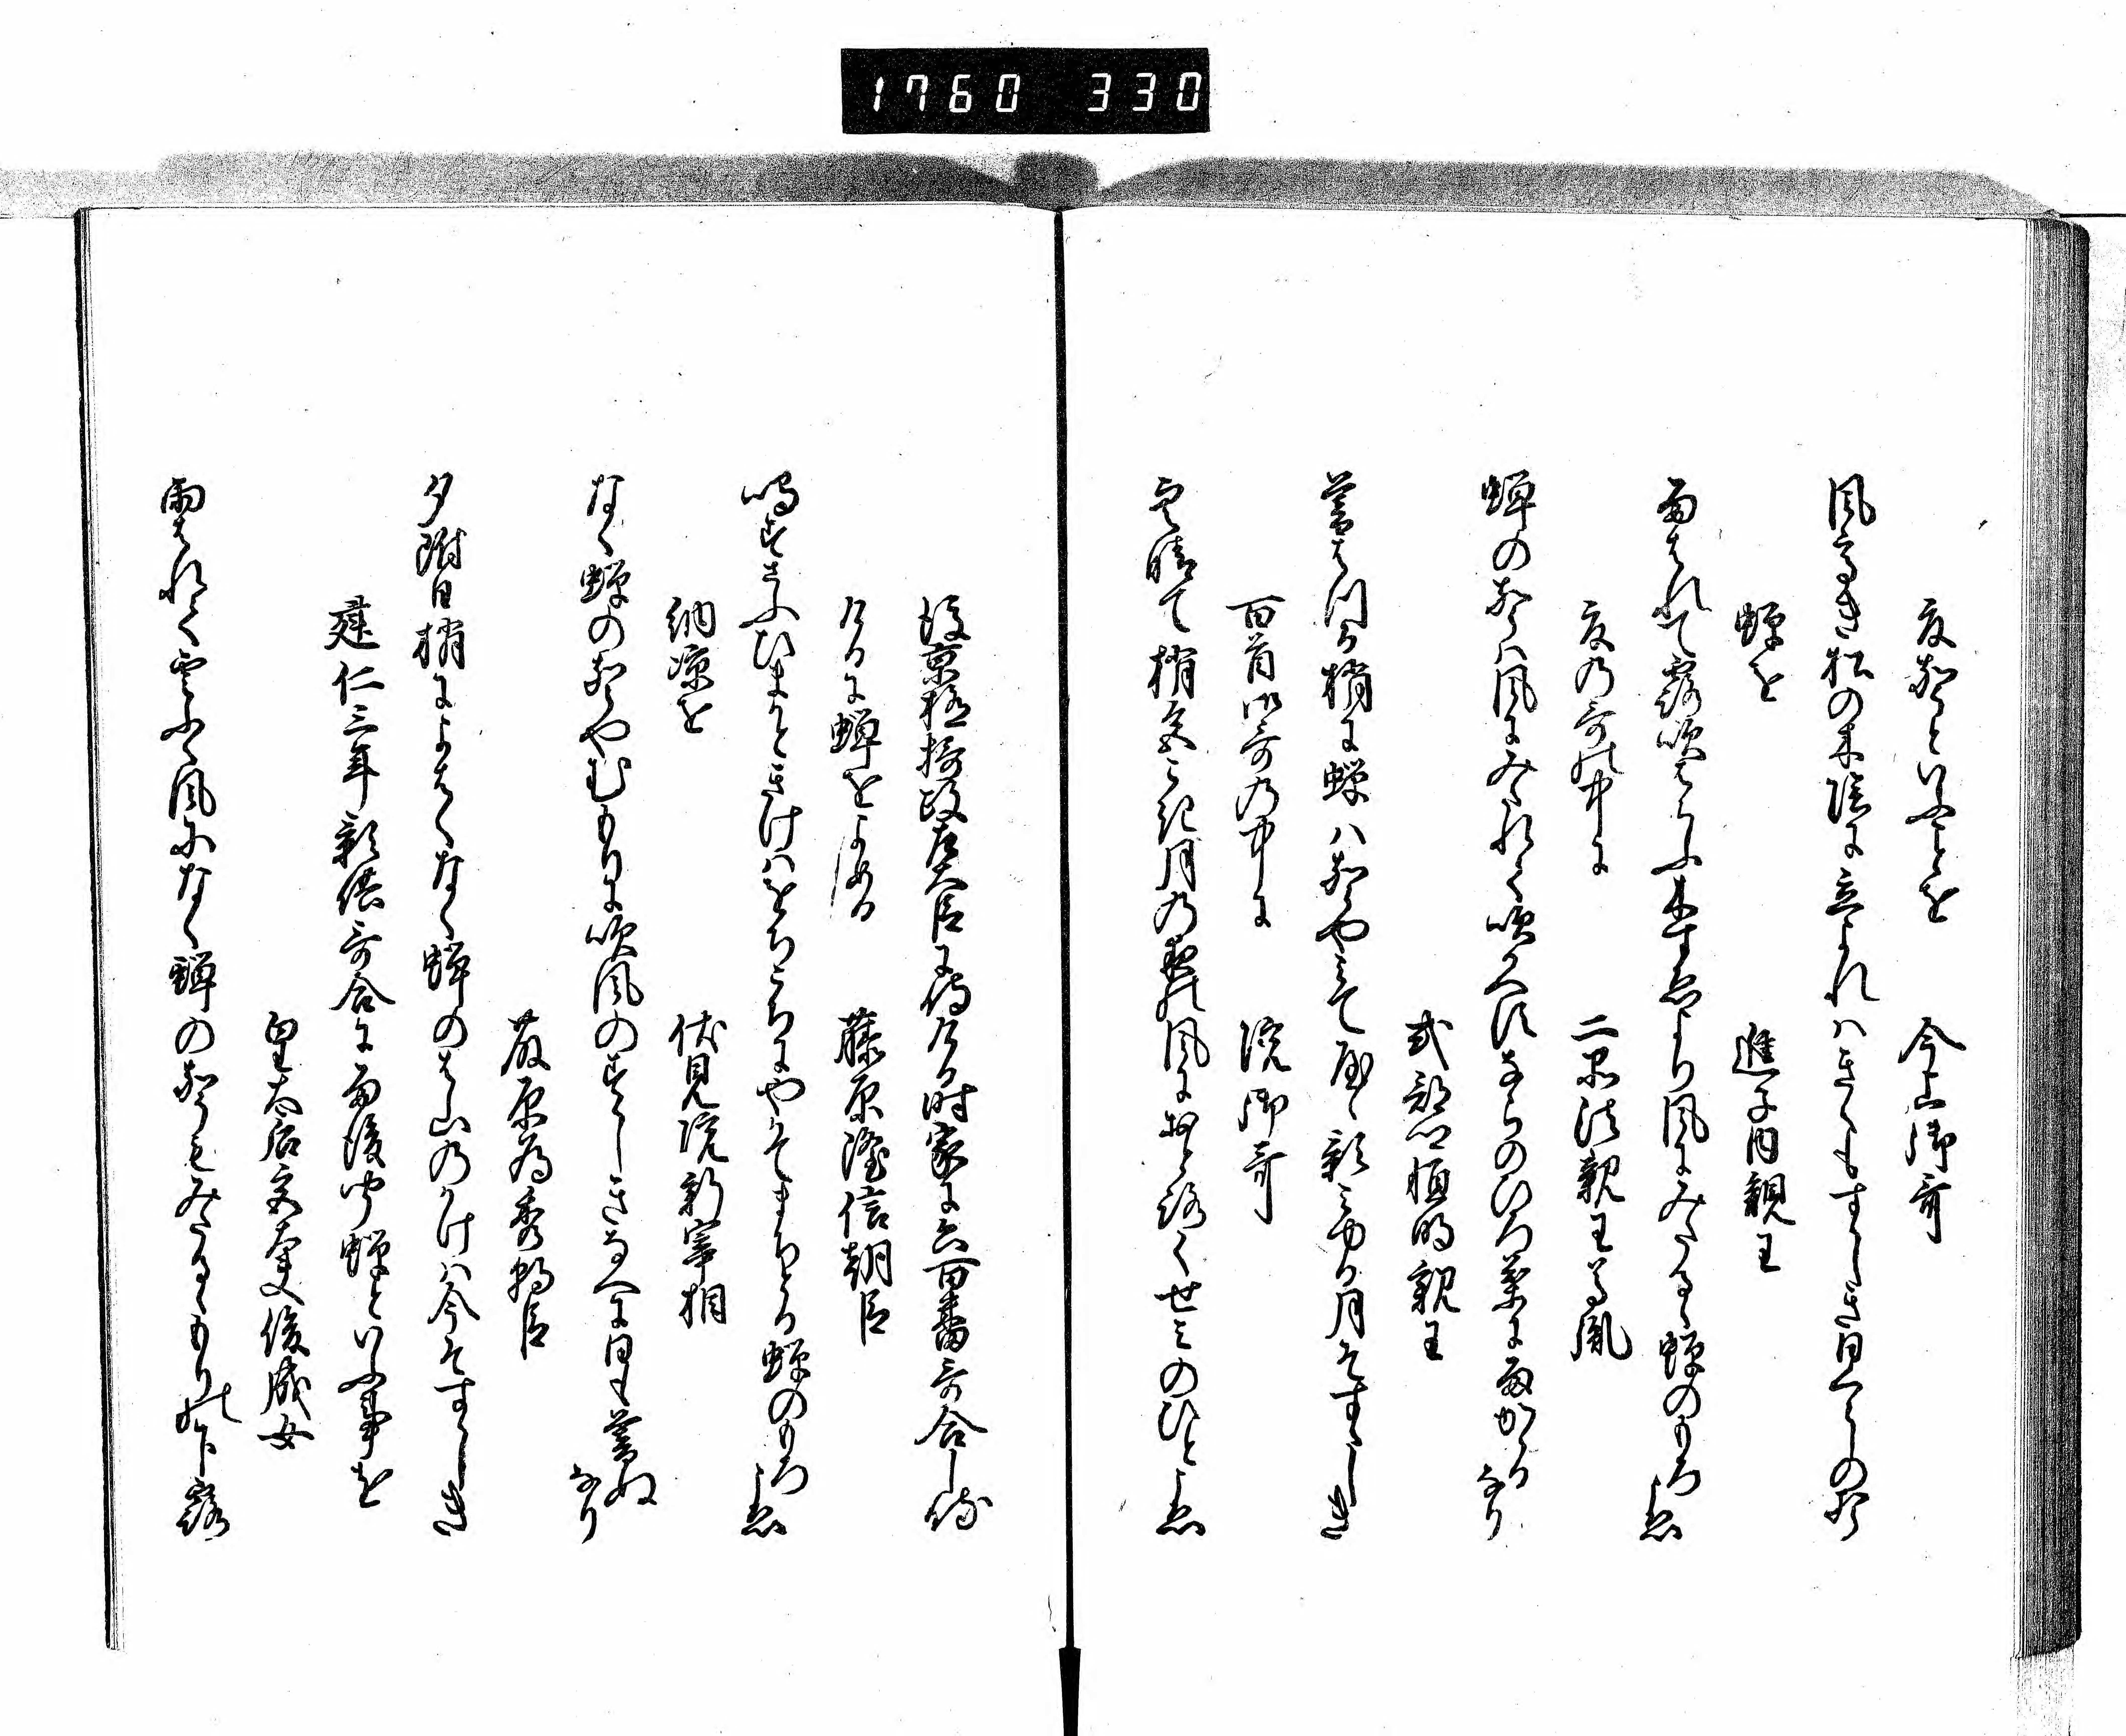 1760 330
夏声といふことを
今上御哥
風高き松の木陰に立よれはきくもすゝしき日くらしの声
蝉を
進子内親王
雨はれて露吹はらふ木すゑより風にみたるゝ蝉のもろこゑ
夏の哥の中に
二品法親王尊胤
蝉のこゑは風にみたれて吹かへすならのひろ葉に雨かゝるなり
式部卿恒明親王
暮はつる梢に蝉は声やみて
月そすゝしき
百首御哥の中に
院御哥
空晴て梢色こき月の夜の風におとろく せミのひとこゑ
後京極摂政左大臣に侍ける時家に六百番哥合し侍
けるに蝉をよめる
藤原隆信朝臣
鳴すさふひまかときけはをちこちにやかてまちとる蝉のもろこゑ
納涼を
伏見院新宰相
なく蝉の声やむもりに吹風のすゝしきなへに日も暮ぬなり
藤原為秀朝臣
夕附日梢によはくなく蝉のは山のかけは今そすゝしき
建仁三年影供哥合に雨後聞蝉といふ事を
皇太后宮大夫俊成女
雨はれて雲ふく風になく蝉の声もみたるゝもりの下露